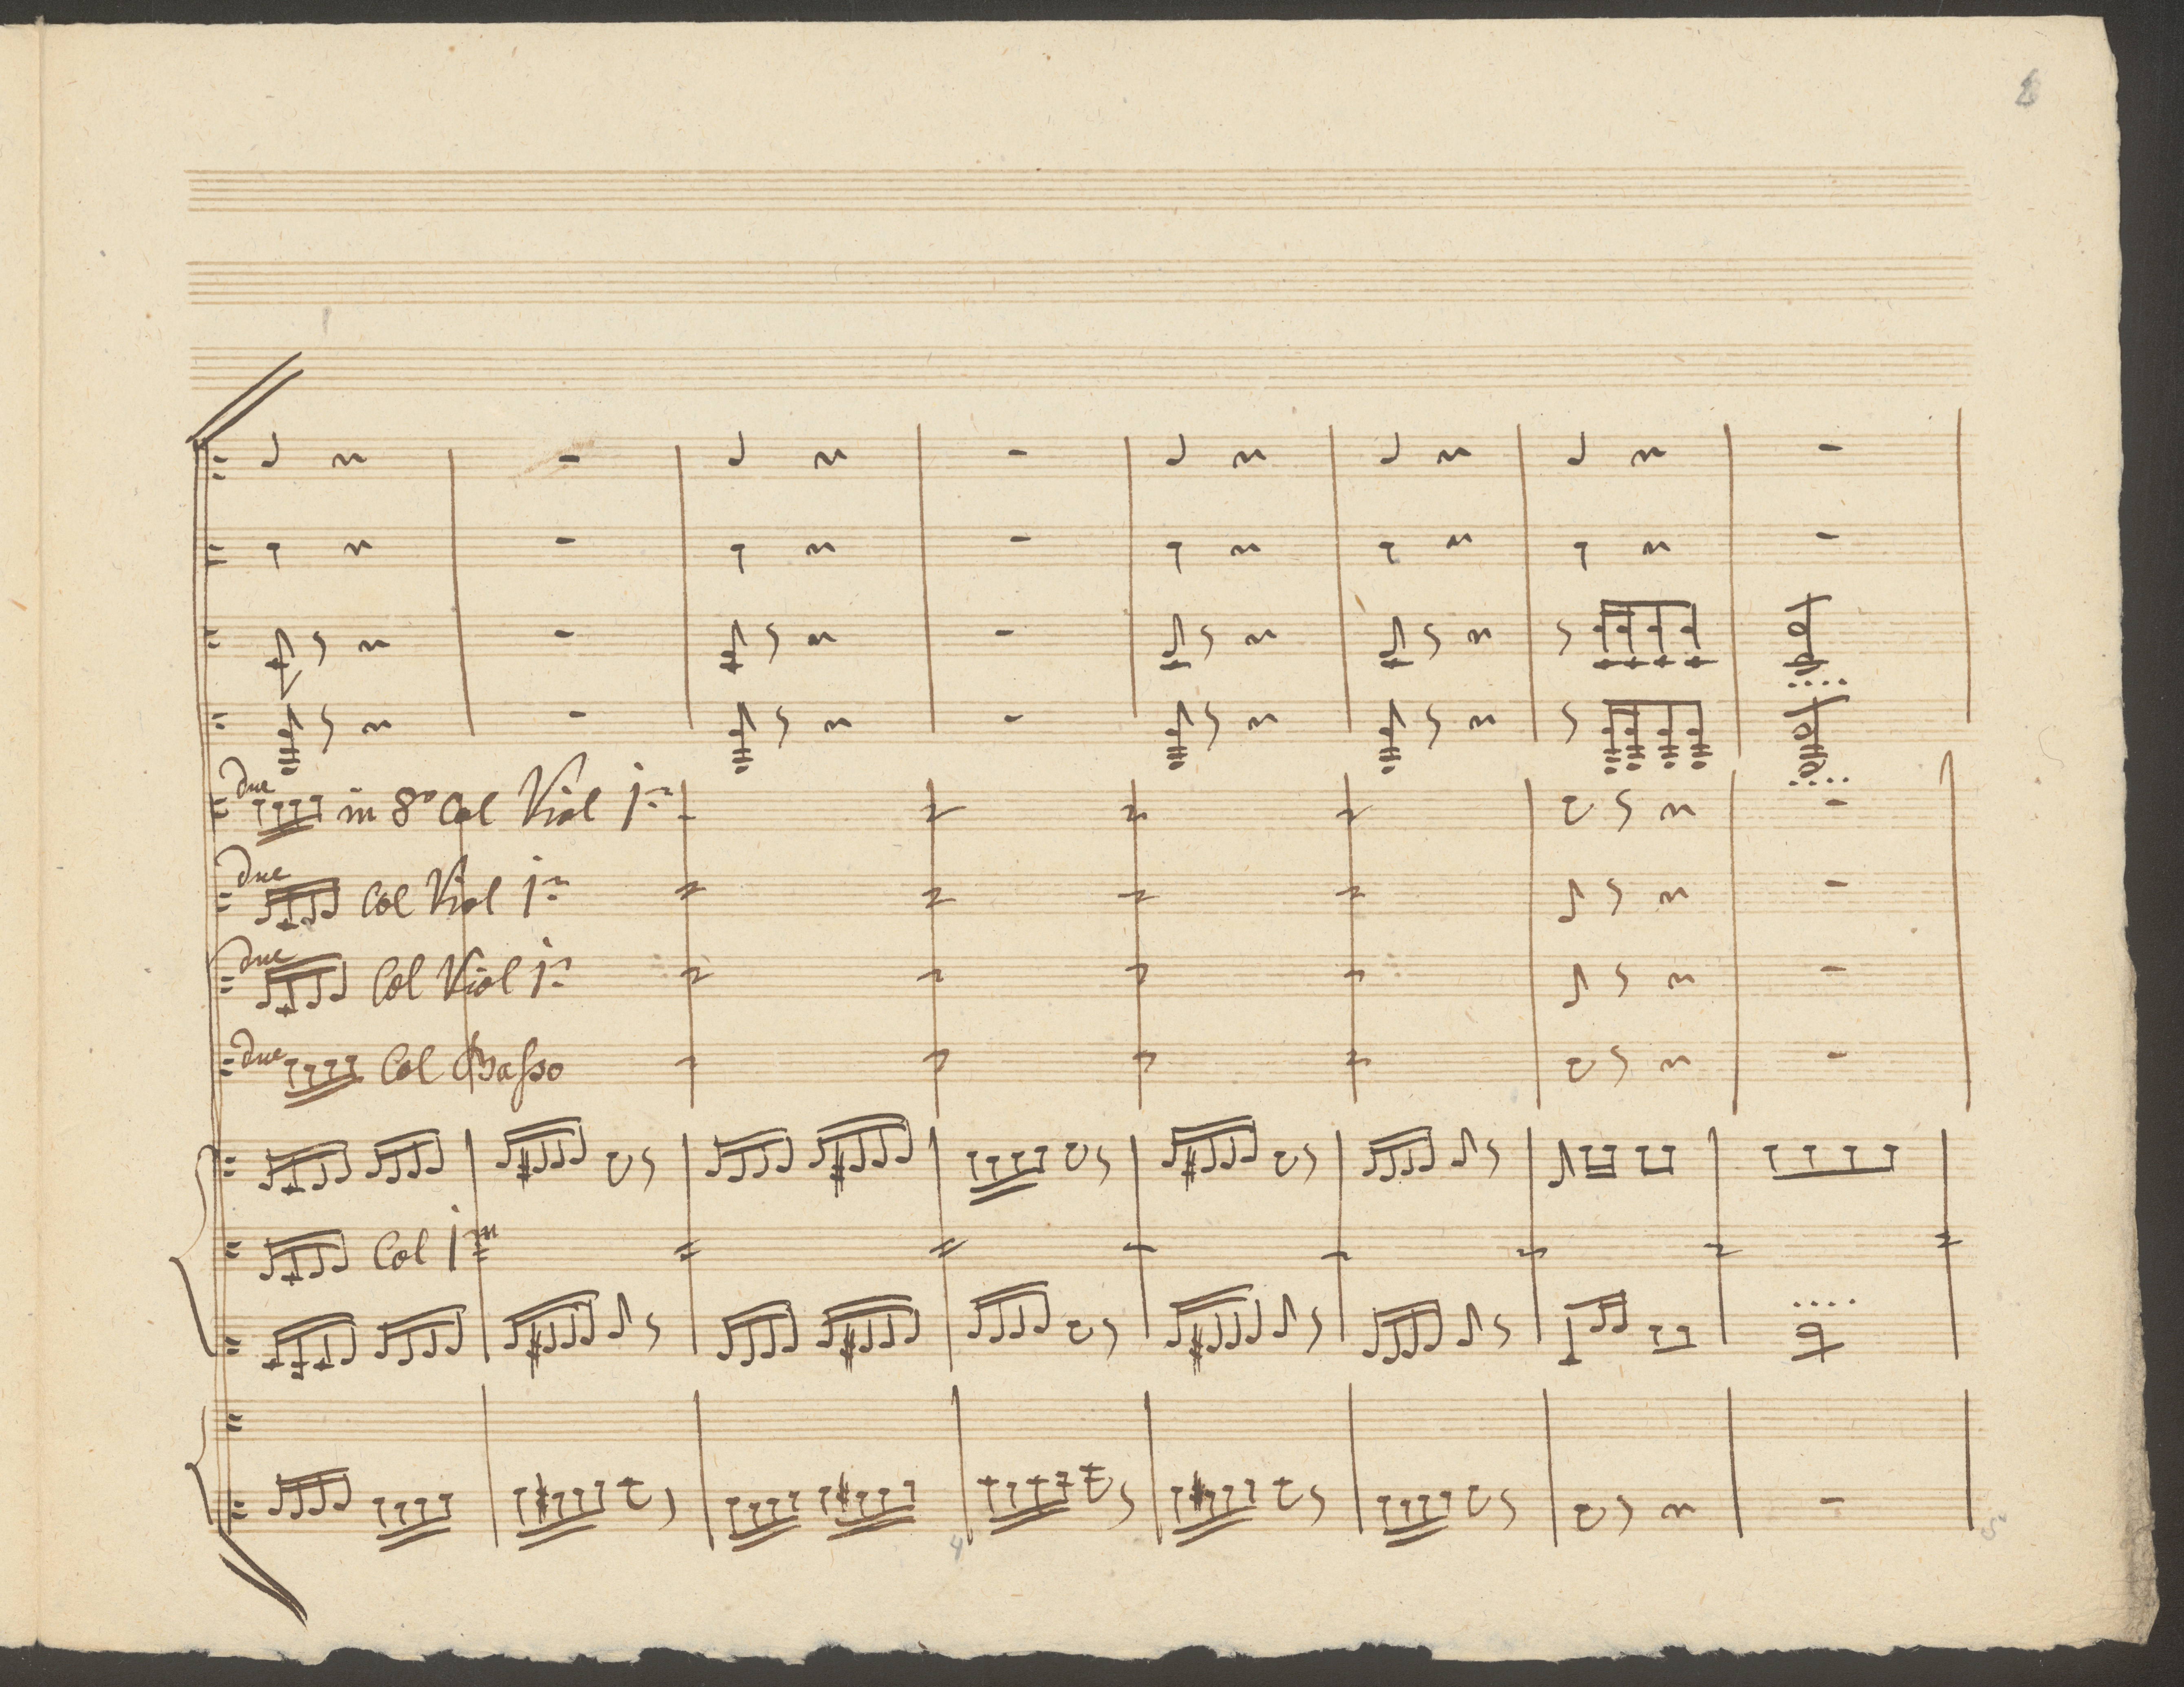 due in 8ª Col Viol 1mo
due Col Viol 1mo
due Col Viol 1mo
due Col Basso
Col 1mo
4
5